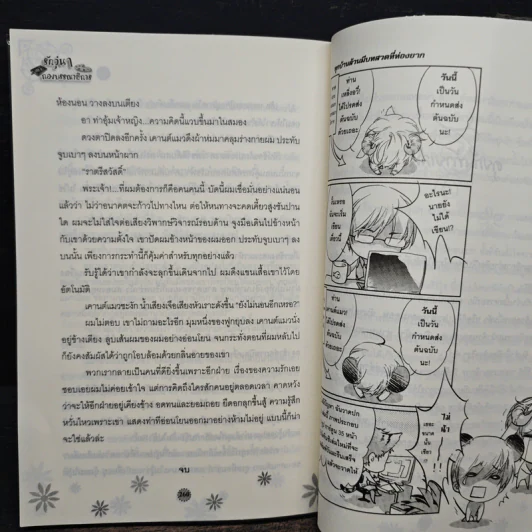 ห้องนอน วางลงบนเตียง
อา ท่าอุ้มเจ้าหญิง...ความคิดนี้แวบขึ้นมาในสมอง
ดวงตาปิดลงอีกครั้ง เคานต์แมวดึงผ้าห่มมาคลุมร่างกายผม ประทับ
จูบเบาๆ ลงบนหน้าผาก
"ราตรีสวัสดิ์"
พระเจ้า!...ที่ผมต้องการก็คือคนคนนี้ บัดนี้ผมเชื่อมั่นอย่างแน่นอน
แล้วว่า ไม่ว่าอนาคตจะก้าวไปทางไหน ต่อให้หนทางจะคดเคี้ยวสูงชันปาน
ใด ผมจะไม่ใส่ใจต่อเสียงวิพากษ์วิจารณ์รอบด้าน จูงมือเดินไปข้างหน้า
กับเขาด้วยความตั้งใจ เขาปัดผมข้างหน้าของผมออก ประทับจูบเบาๆ ลง
บนนั้น เพียงการกระทำนี้ก็คุ้มค่าสำหรับทุกอย่างแล้ว
รับรู้ได้ว่าเขากำลังจะลุกขึ้นเดินจากไป ผมดึงแขนเสื้อเขาไว้โดย
อัตโนมัติ
เคานต์แมวชะงัก น้ำเสียงเจือเสียงหัวเราะดังขึ้น "ยังไม่นอนอีกเหรอ?"
ผมไม่ตอบ เขาไม่ถามอะไรอีก มุมหนึ่งของฟูกยุบลง เคานต์แมวนั่ง
อยู่ข้างเตียง ลูบเส้นผมของผมอย่างอ่อนโยน จนกระทั่งตอนที่ผมหลับไป
ก็ยังคงสัมผัสได้ว่าถูกโอบล้อมด้วยกลิ่นอายของเขา
พวกเรากลายเป็นคนที่ดียิ่งขึ้นเพราะอีกฝ่าย เรื่องของความรักเอย
ชอบเอยผมไม่ค่อยเข้าใจ แต่การคิดถึงใครสักคนอยู่ตลอดเวลา คาดหวัง
ว่าจะให้อีกฝ่ายอยู่เคียงข้าง อดทนและยอมถอย ยืดอกลุกขึ้นสู้ ความรู้สึก
หวั่นไหวเพราะเขา แสดงท่าทีอ่อนโยนออกมาอย่างห้ามไม่อยู่ แบบนี้ก็น่า
จะใช่แล้วล่ะ
จบ
268
วันนี้
เป็นวัน
กำหนดส่ง
ต้นฉบับ
นะ!
อะไรนะ!
นายยัง
ไม่ได้
เขียน!?
วันนี้
เป็นวัน
กำหนดส่ง
ต้นฉบับ
นะ!
ท่าน
เคานต์แมว!
ได้โปรดส่ง
ต้นฉบับ
ด้วยเถอะ
ไม่